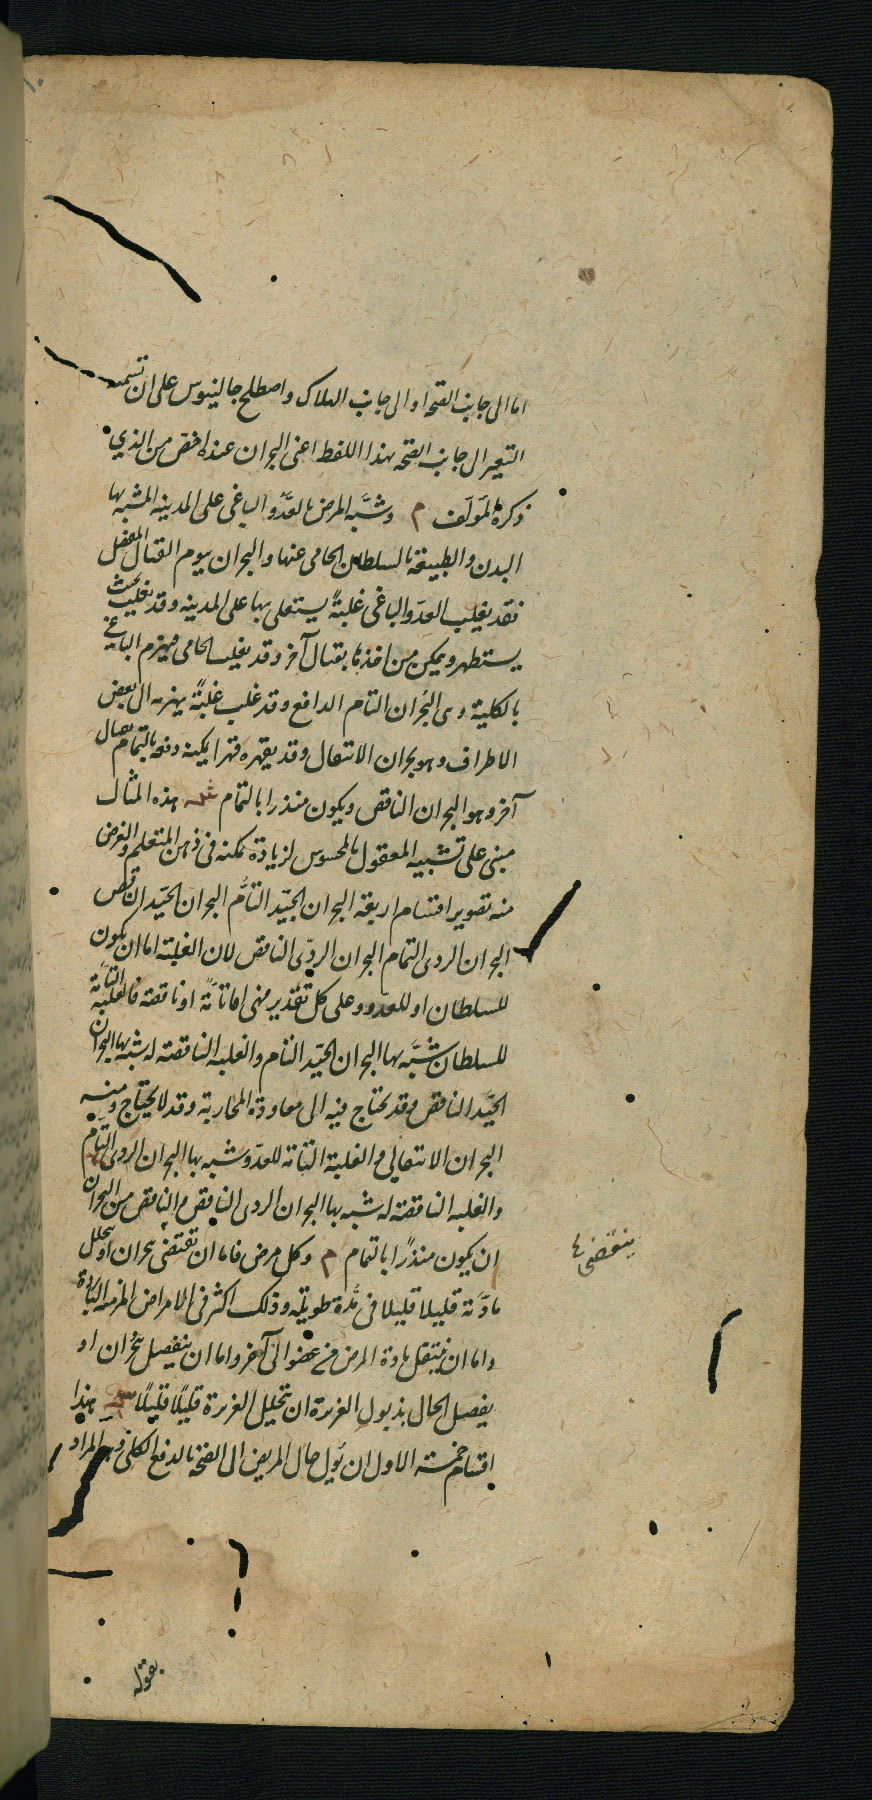 اما الى جانب الصحة او الى جانب الهلاك واصطلح جالينوس على ان تسمية
التغير الى جانب الصحة بهذا اللفظ اعنى البحران عنده اخص من الذي
ذكره المؤلف م وشبه المرض بالعدو الباغى على المدينة المشبه بها
البدن والطبيعة بالسلطان الحامى عنها والبحران بيوم القتال الفصل
فقد يغلب العدو الباغى غلبةً يستعلى بها على المدينه وقد يغلب بحيث
يستظهر ويمكن من اخذها بقتال آخر وقد يغلب الحامى فيهزم الباغي
بالكلية وهى البحران التام الدافع وقد غلب غلبةً يهزمه الى بعض
الاطراف وهو بحران الانتقال وقد يقهره قهرا يمكنه دفعه بالتمام بقتال
آخر وهو البحران الناقص ويكون منذرا بالتمام ش هذه المثال
مبنى على تشبيه المعقول بالمحسوس لزيادة تمكنه فى ذهن المتعلم والغرض
منه تصوير اقسام اربعة البحران الجيّد التامّ البحران الجيّد الناقص
البحران الردى التمام البحران الردّى الناقص لان الغلبة اما ان يكون
للسلطان او للعدو وعلى كل تقدير فهى اما تامّة او ناقصة فالغلبة التامة
للسلطان شبّه بها البحران الجيّد التام والغلبه الناقصة له شبه بها البحران
الجيّد الناقص وقد تحتاج فيه الى معاودة المحاربة وقد لا يحتاج ومنه
البحران الانتقالي والغلبة التامة للعدو شبه بها البحران الردى التام
والغلبه الناقصة له شبه بها البحران الردى الناقص والناقص من البحران
ان يكون منذرًا بالتمام م وكل مرض فاما ان تقتضى بحران او يتحلل
ينقضى
مادّته قليلا قليلا فى مُدة طويلة وذلك اكثر فى الامراض المزمنه الباردة
واما ان ينتقل مادة المرض من عضو الى آخر واما ان ينفصل بحران او
يفصل الحال بذبول الغريزة ان تتحلل الغريزة قليلًا قليلًا ش هذا
اقسام خمسة الاول ان يؤل حال المريض الى الصحة بالدفع الكلى وهو المراد
بقوله